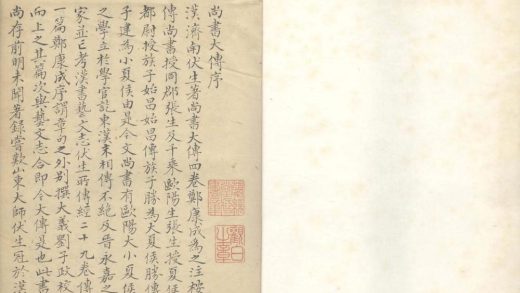 尚書大傳序
漢濟南伏生著尚書大傳四卷鄭康成為之注桉
傳尚書授同郡張生及千乘歐陽生張生授夏侯
都尉授族子始昌始昌傳族子勝為大夏侯勝傳
子建為小夏侯由是今文尚書有歐陽大小夏侯
之學立於學官訖東漢末相傳不絕及晉永嘉之
家並亡考漢書藝文志伏生所傳經二十九卷傳
一篇鄭康成序謂章句之外別撰大義劉子政校
向上之其篇次與藝文志合即今大傳是也此書
尚存前明未聞著錄嘗歎山東大師伏生冠於漢